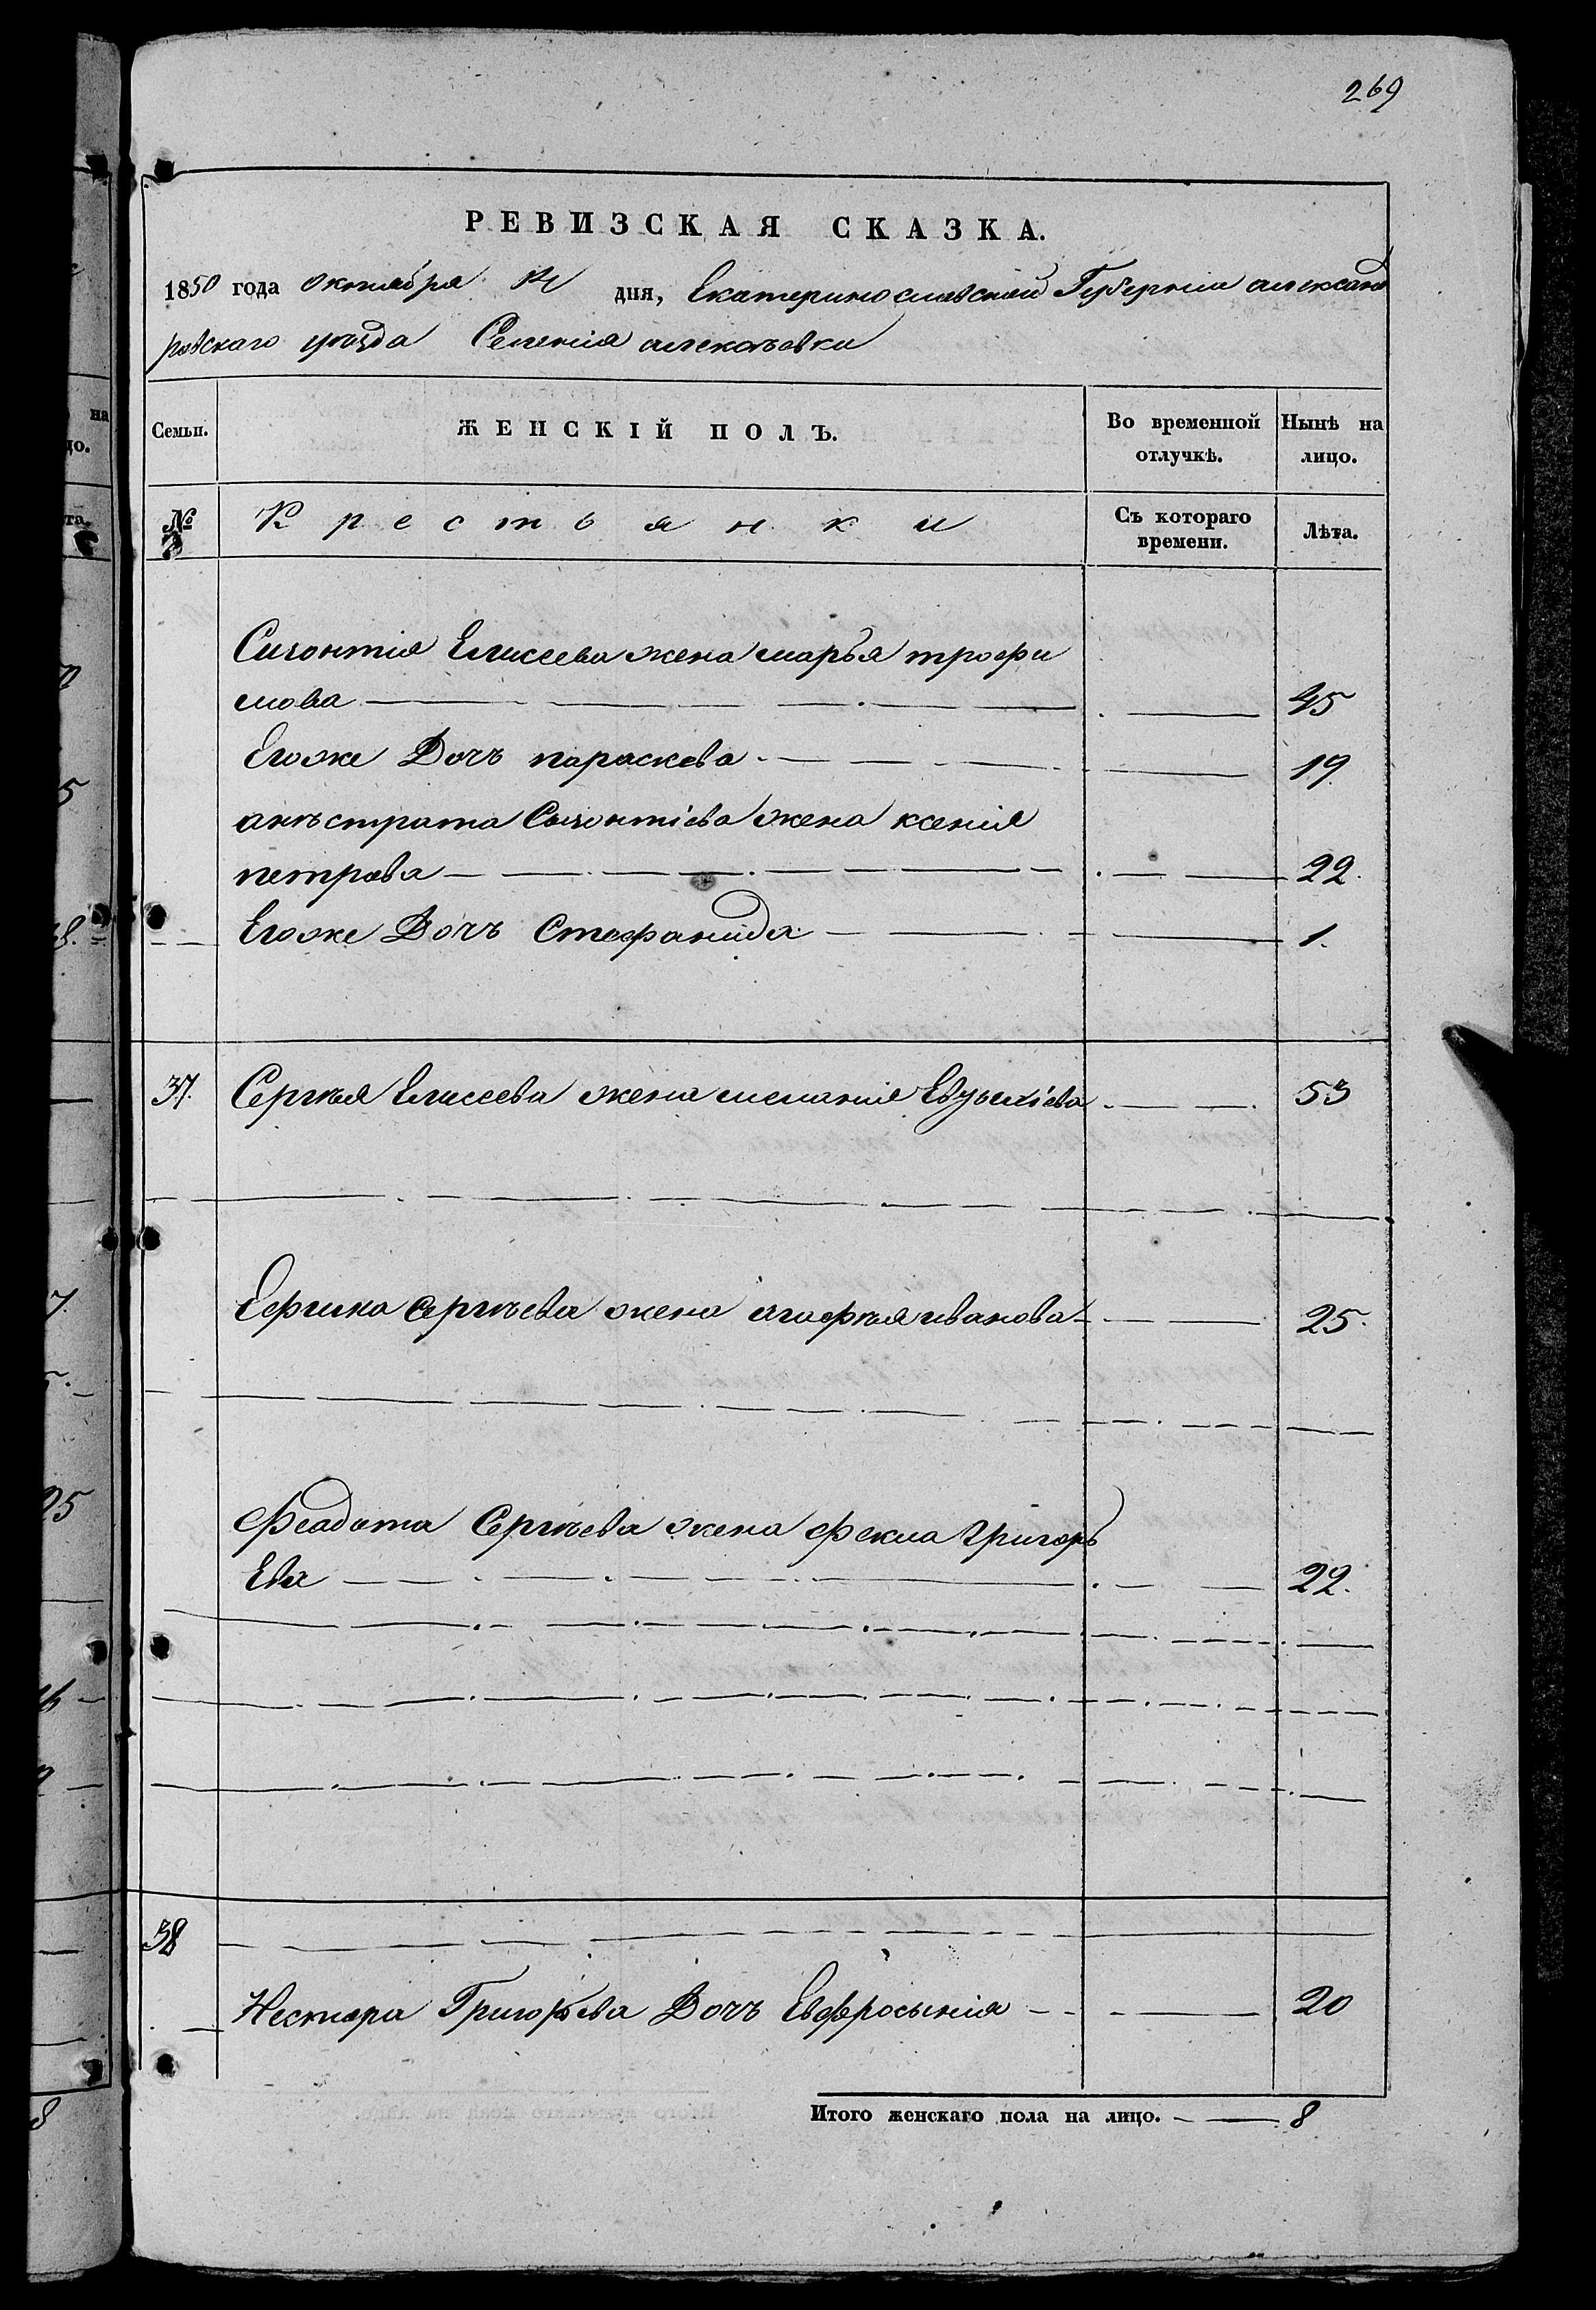 269
РЕВИЗСКАЯ СКАЗКА.
1850 года октября дня, Екатеринославской Губерніи александ
ровскаго уезда Селенія алексеевки
Семьи. ЖЕНСКІЙ ПОЛЪ. Во временной отлучкѣ. Нынѣ на лицо.
№ Крестьянки Съ котораго времени. Лѣта.
Елисеева жена марья трофи
мова 45
Егоже Дочъ параскева 19
жена ксенія
петрова 22.
Егоже Дочъ Стефанида 1.
37. Сергѣя Елисеева жена меланія 53
Ефима Сергѣева жена агафѣя иванова 25.
Феадота Сергѣева жена Фекла Григорь
Ева 22.
38
Нестера Григорьева Дочъ Евфросынія 20
Итого женскаго пола на лицо. 8
на
цо.
та.
5
8.
7
25
8